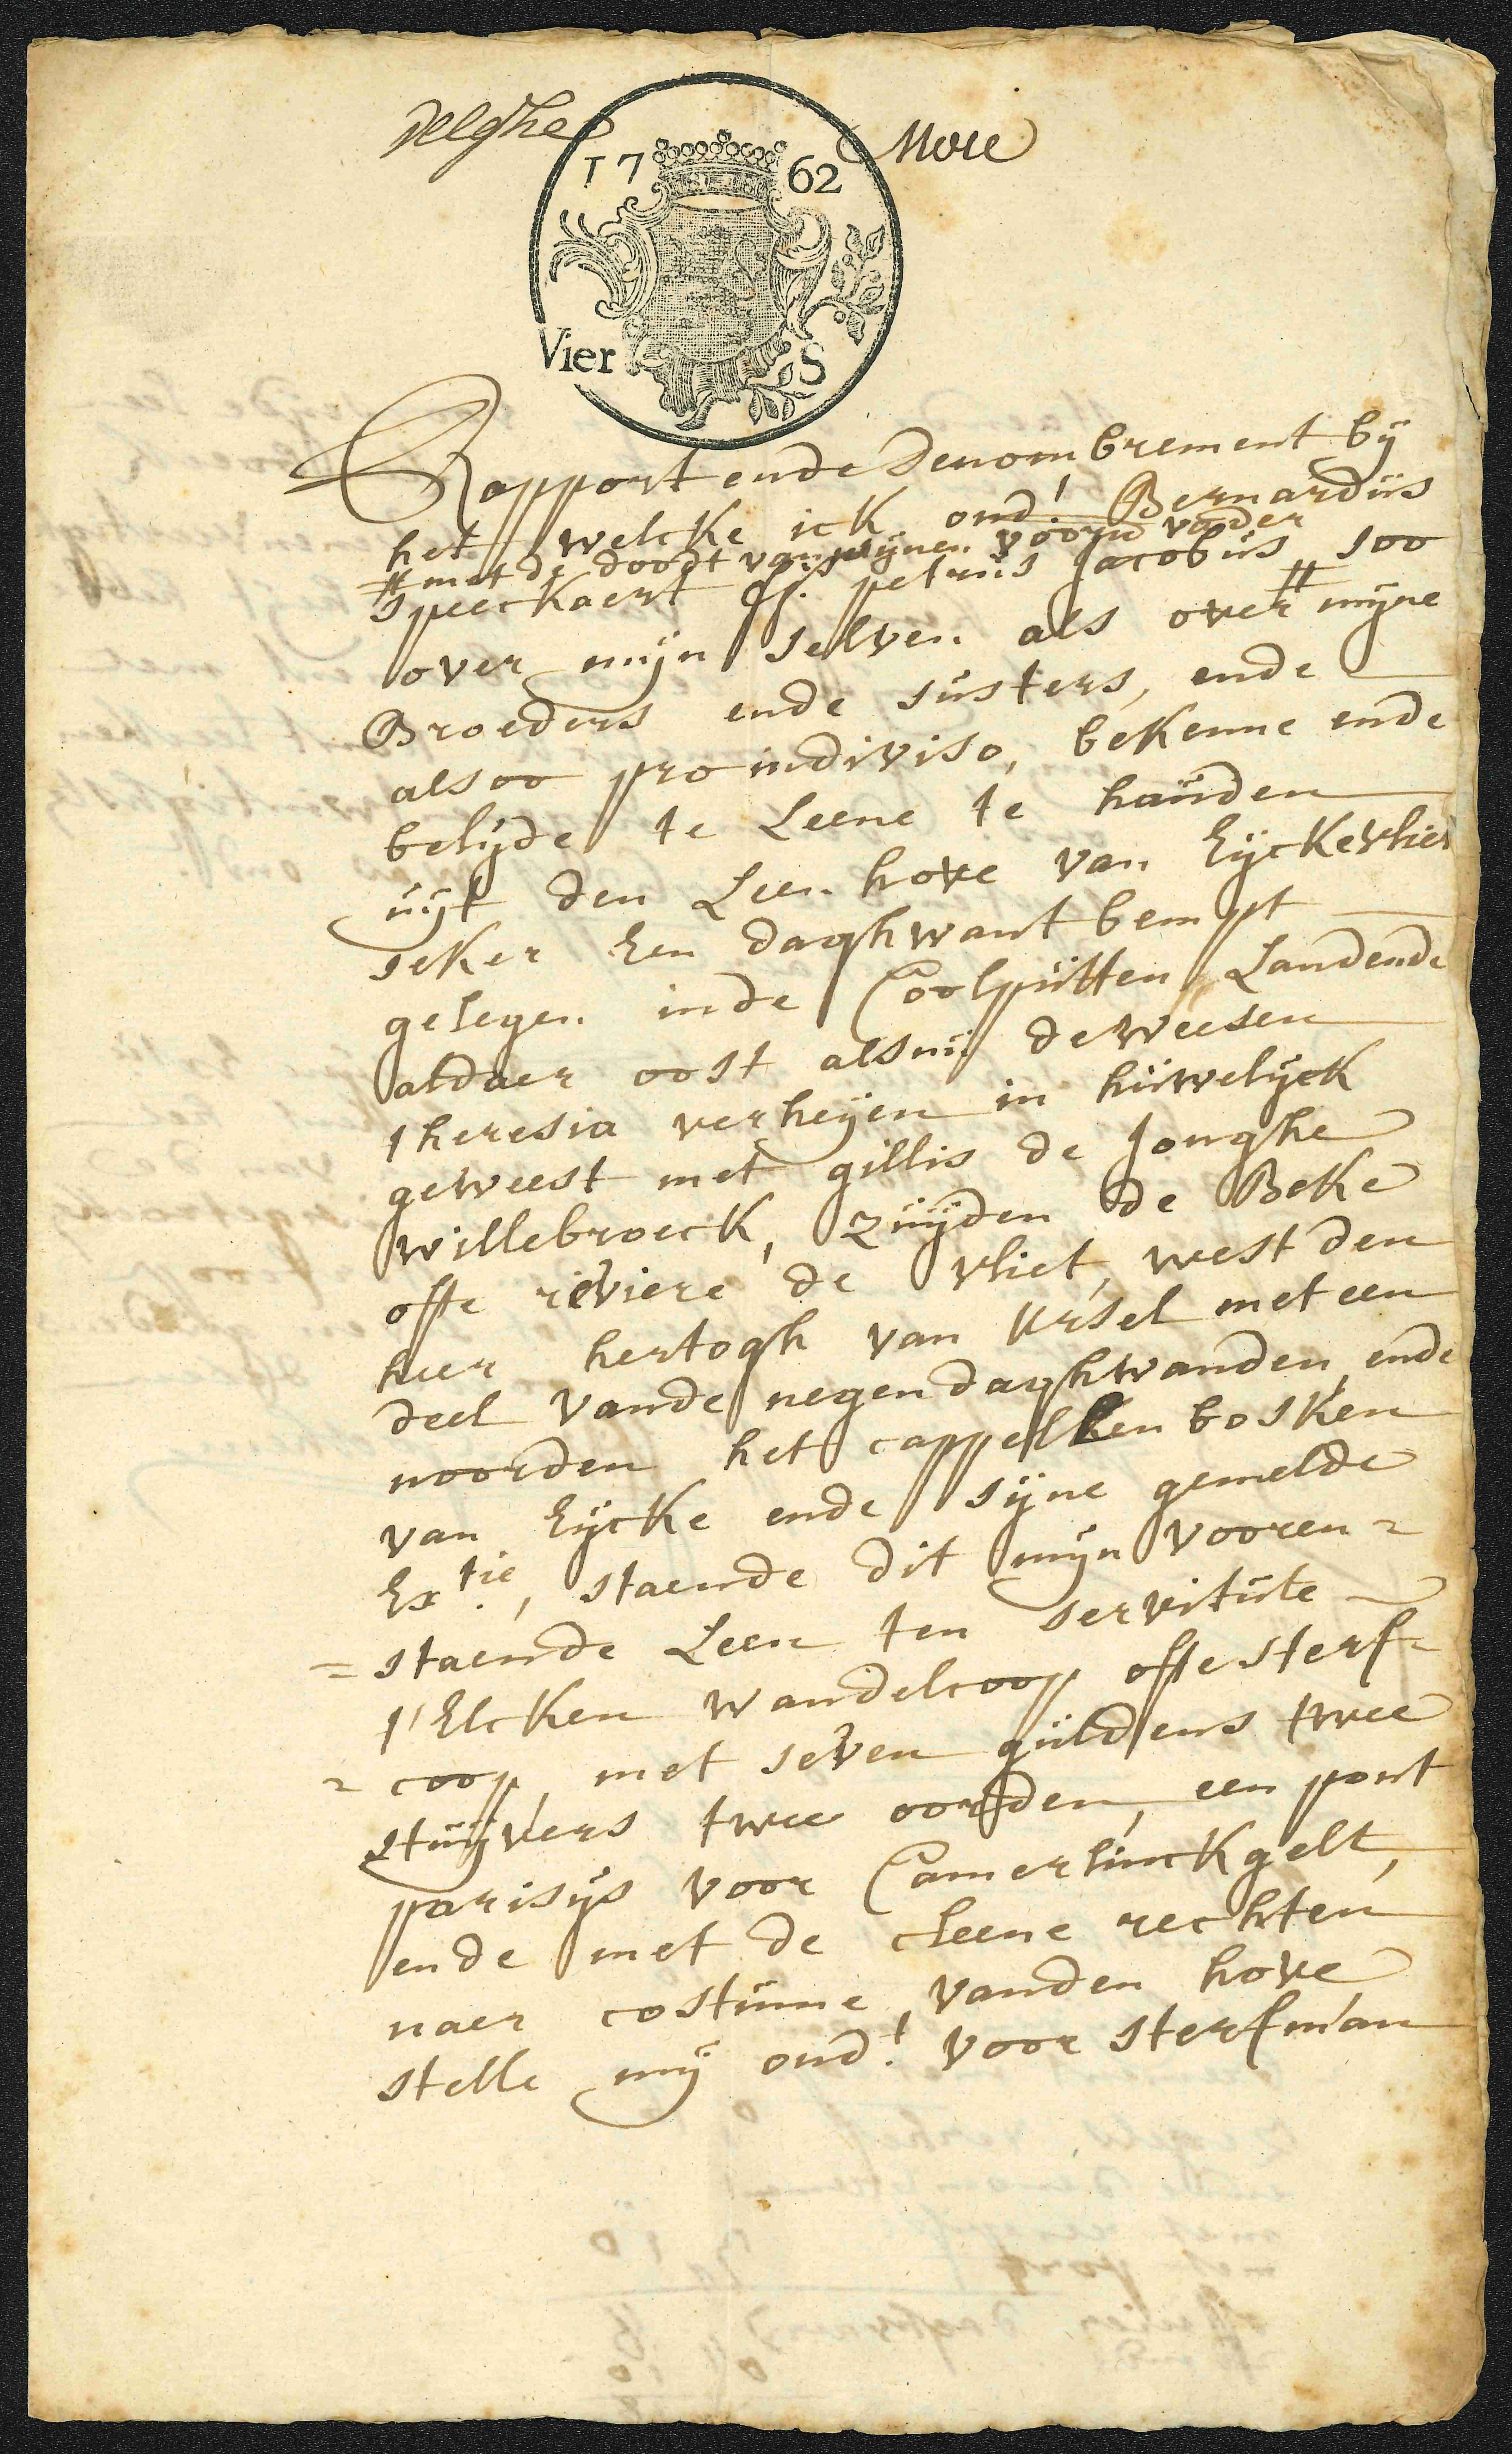 Delghe More
17 62
Vier S
Rapport ende Denombrement bij
het welcke ick ond.t Bernardus
# met de doodt van mijnen voorn vader
Speeckaert fs. petrus Jacobus soo
over mijn selven als over # mijne
Broeders ende susters, ende
alsoo pro indiviso, bekenne ende
belijde te Leene te hauden
uijt den Leenhove van Eijckevliet
seker Een daghwant bempt
gelegen inde Coolputten Landende
aldaer oost alsnu de weesen
theresia verheijen in huwelijck
geweest met gillis de Jonghe
willebroeck, zuijden de Beke
ofte riviere de vliet, west den
heer hertogh van ursel met een
deel vande negen daghwanden, ende
noorden het cappellen bosken
van Eijcke ende sijne gemelde
Ex.tie, staende dit mijn vooren=
=staende Leen ten servitute
t'Elcken wandelcoop ofte sterf=
=coop, met seven guldens twee
stuijvers twee oorden, een pont
parisijs voor Camerlinckgelt,
ende met de cleene rechten
naer costume vanden hove
stelle mij ond.t voor sterfman